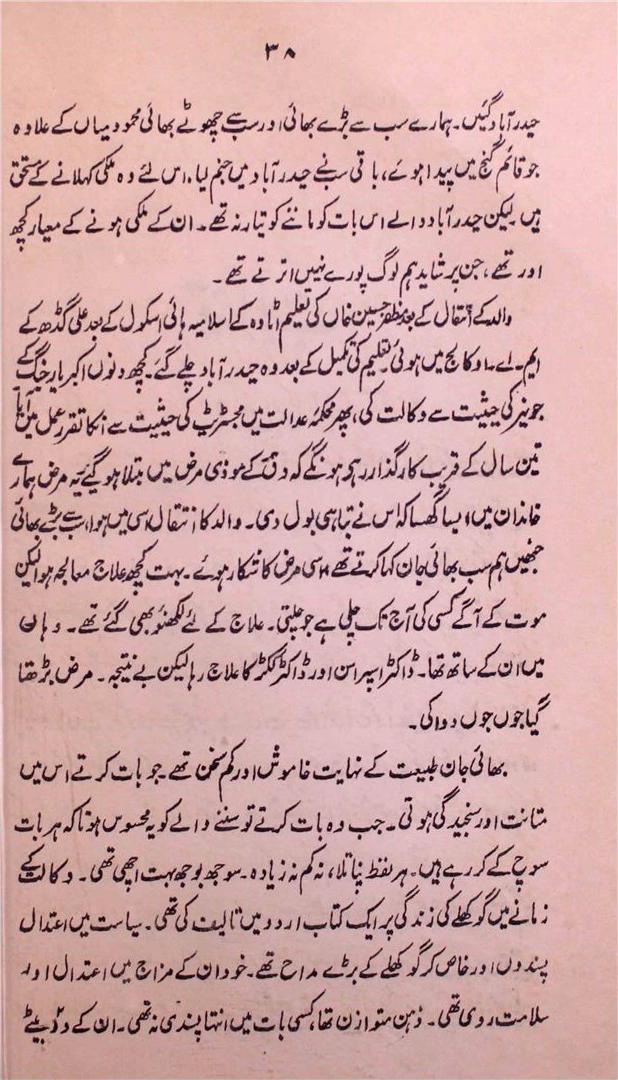 ۳۸
حیدرآباد گئیں۔ ہمارے سب سے بڑے بھائی اور سب سے چھوٹے بھائی محمود میاں کے علاوہ
جو قائم گنج میں پیدا ہوئے، باقی سب نے حیدرآباد میں جنم لیا۔ اس لئے وہ ملکی کہلانے کے مستحق
ہیں لیکن حیدرآباد والے اس بات کو ماننے کو تیار نہ تھے۔ ان کے ملکی ہونے کے معیار کچھ
اور تھے، جن پر شاید ہم لوگ پورے نہیں اترتے تھے۔
والد کے انتقال کے بعد مظفر حسین خاں کی تعلیم اٹاوہ کے اسلامیہ ہائی اسکول کے بعد علی گڈھ کے
ایم۔ اے۔ او کالج میں ہوئی۔ تعلیم کی تکمیل کے بعد وہ حیدرآباد چلے گئے۔ کچھ دنوں اکبر یار جنگ کے
جونیر کی حیثیت سے وکالت کی، پھر محکمہ عدالت میں مجسٹریٹ کی حیثیت سے انکا تقرر عمل میں آیا
تین سال کے قریب کارگذار رہے ہونگے کہ دق کے موذی مرض میں مبتلا ہو گئے۔ یہ مرض ہمارے
خاندان میں ایسا گھسا کہ اس نے تباہی بول دی۔ والد کا انتقال اسی میں ہوا، سب سے بڑے بھائی
جنھیں ہم سب بھائی جان کہا کرتے تھے اسی مرض کا شکار ہوئے۔ بہت کچھ علاج معالجہ ہوا لیکن
موت کے آگے کسی کی آج تک چلی ہے جو چلتی۔ علاج کے لئے لکھنؤ بھی گئے تھے۔ وہاں
میں ان کے ساتھ تھا۔ ڈاکٹر اسپراسن اور ڈاکٹر ککڑ کا علاج رہا لیکن بے نتیجہ۔ مرض بڑھتا
گیا جوں جوں دوا کی۔
بھائی جان طبیعت کے نہایت خاموش اور کم سخن تھے۔ جو بات کرتے اس میں
متانت اور سنجیدگی ہوتی۔ جب وہ بات کرتے تو سننے والے کو یہ محسوس ہوتا کہ ہر بات
سوچ کے کر رہے ہیں۔ ہر لفظ نپا تلا، نہ کم نہ زیادہ۔ سوجھ بوجھ بہت اچھی تھی۔ وکالت کے
زمانے میں گوکھلے کی زندگی پر ایک کتاب اردو میں تالیف کی تھی۔ سیاست میں اعتدال
پسندوں اور خاص کر گوکھلے کے بڑے مداح تھے۔ خود ان کے مزاج میں اعتدال اور
سلامت روی تھی۔ ذہن متوازن تھا، کسی بات میں انتہا پسندی نہ تھی۔ ان کے دو بیٹے